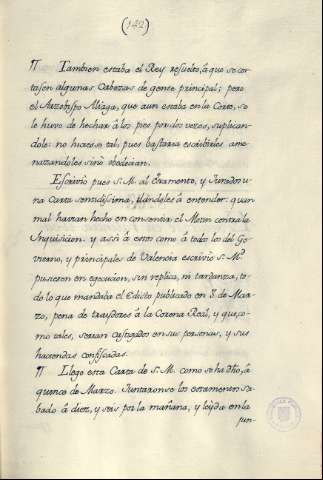 (142)
¶ Tambien estaba el Rey resuelto, â que se cor
tasen algunas Cabezas de gente principal; pero
el Arzobispo Aliaga, que aun estaba en la Corte, se
le huvo de hechar â los pies por dos vezes, suplican
dole: no hiciese tal, pues bastaria escrivirlos ame
nazandoles sino obedecian.
Escrivio pues S. M. al Estamento, y Jurados u
na Carta sentidissima, dandoles â entender: quan
mal havian hecho en consentir el Motin contra la
Inquisicion. y assi â estos como â todos los del Go
vierno, y principales de Valencia escrivio S. Mᵈ.
pusiesen en egecucion, sin replica, ni tardanza, to
do lo que mandaba el Edicto publicado en 3. de Mar
zo, pena de traydores â la Corona Real, y que, co
mo tales, serian castigados en sus personas, y sus
haciendas confiscadas.
¶ Llegò esta Carta de S. M. como se ha dho, â
quince de Marzo. Juntaronse los estamentos sa
bado â diez, y seis por la mañana, y leyda en la
jun-